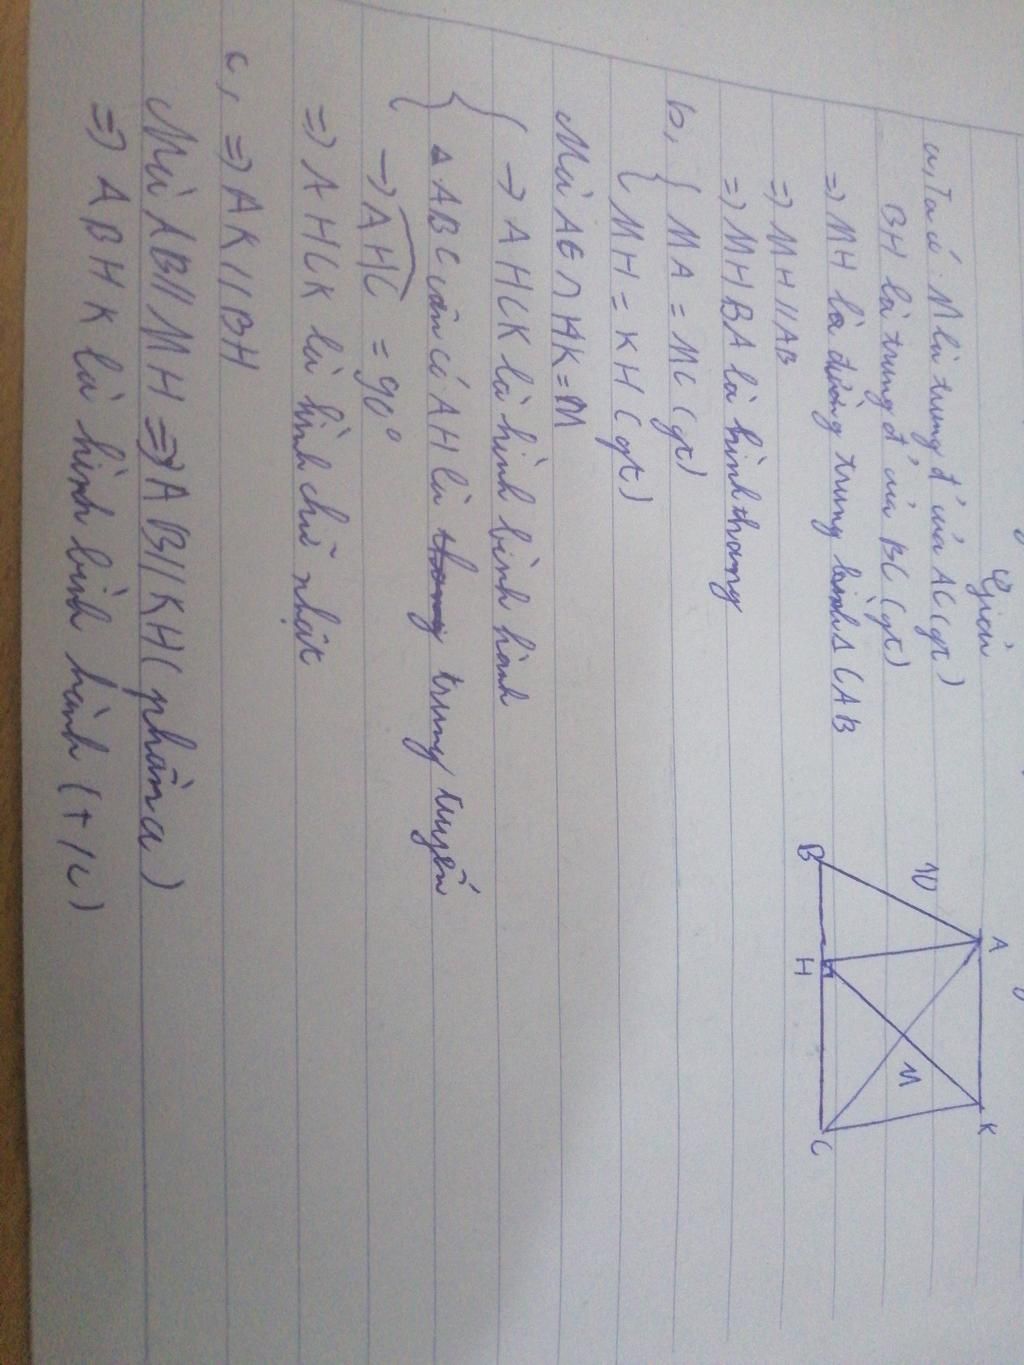 Giải
a, Ta có: M là trung đ' của AC (gt)
BH là trung đ' của BC (gt)
=> MH là đường trung bình Δ CAB
=> MH // AB
=> MHBA là hình thang
b, { MA = MC (gt)
{ MH = KH (gt)
Mà AC ∩ HK = M
{ -> AHCK là hình bình hành
{ Δ ABC cân có AH là trung tuyến
-> AHC = 90°
=> AHCK là hình chữ nhật
c, => AK // BH
Mà AB // MH => AB // KH (phần a)
=> ABHK là hình bình hành (t/c)
A
K
10
M
B
H
C